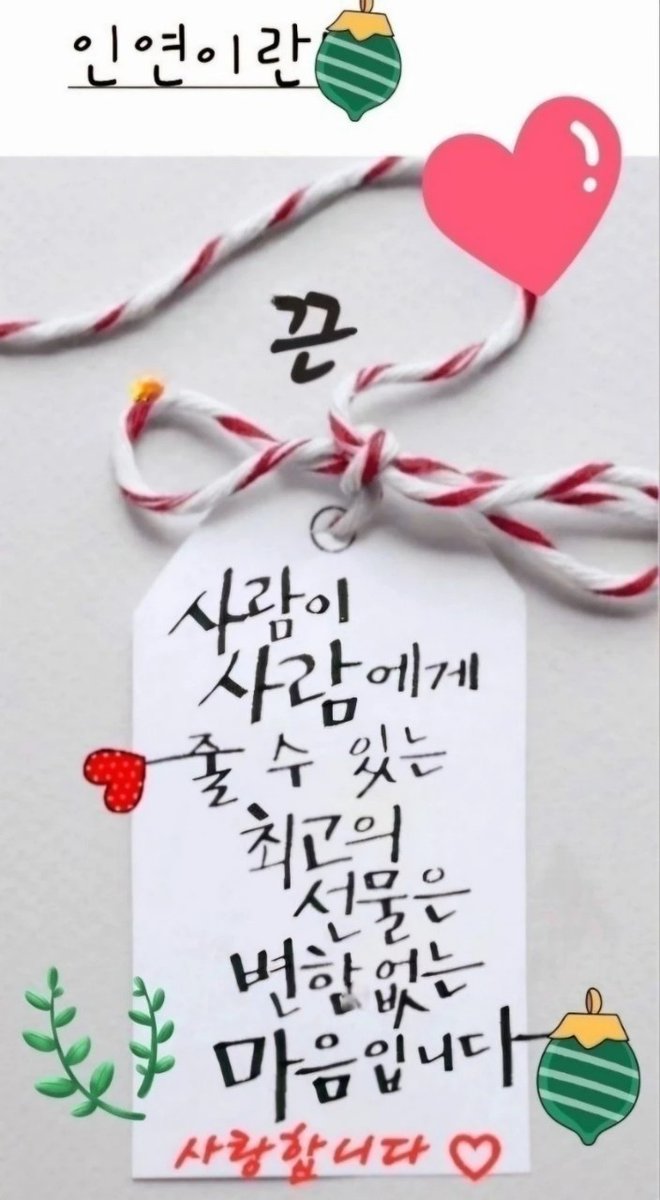 인연이란
끈
사람이
사람에게
줄 수 있는
최고의
선물은
변함없는
마음입니다
사랑합니다